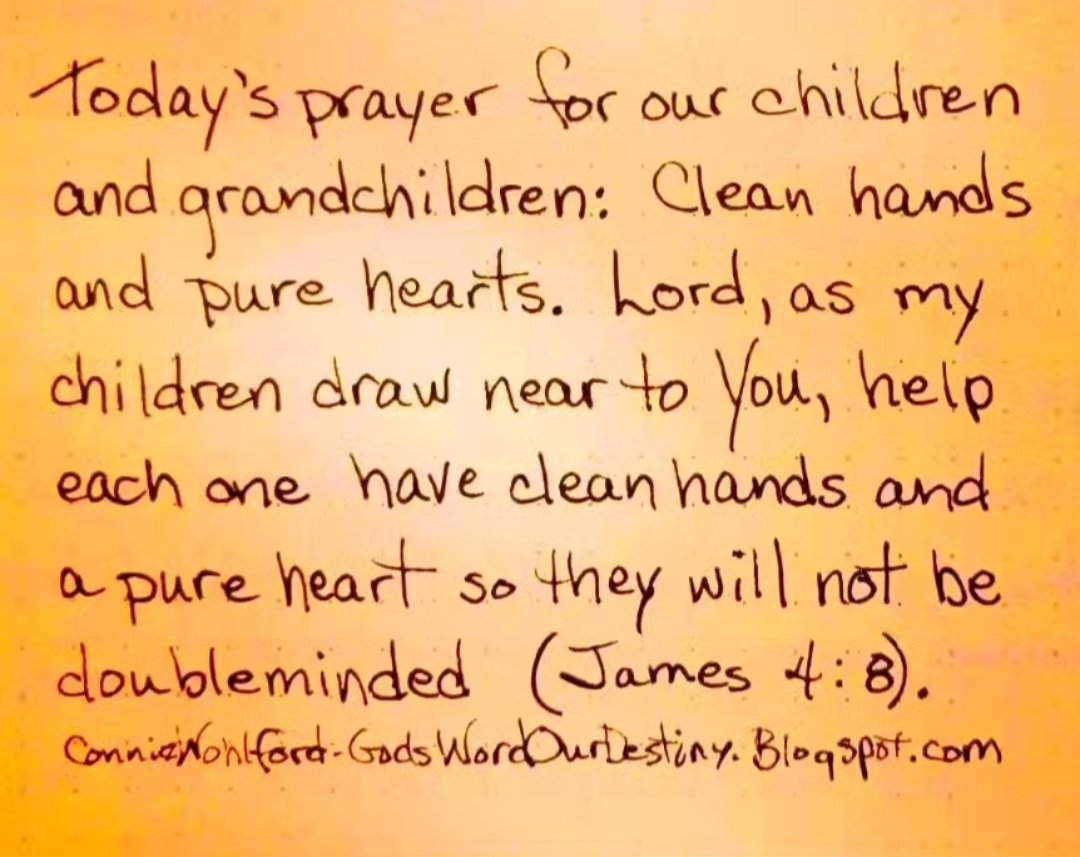 Today's prayer for our children
and grandchildren: Clean hands
and pure hearts. Lord, as my
children draw near to You, help
each one have clean hands and
a pure heart so they will not be
doubleminded (James 4:8).
ConnieWohlford-GodsWordOurDestiny.Blogspot.com